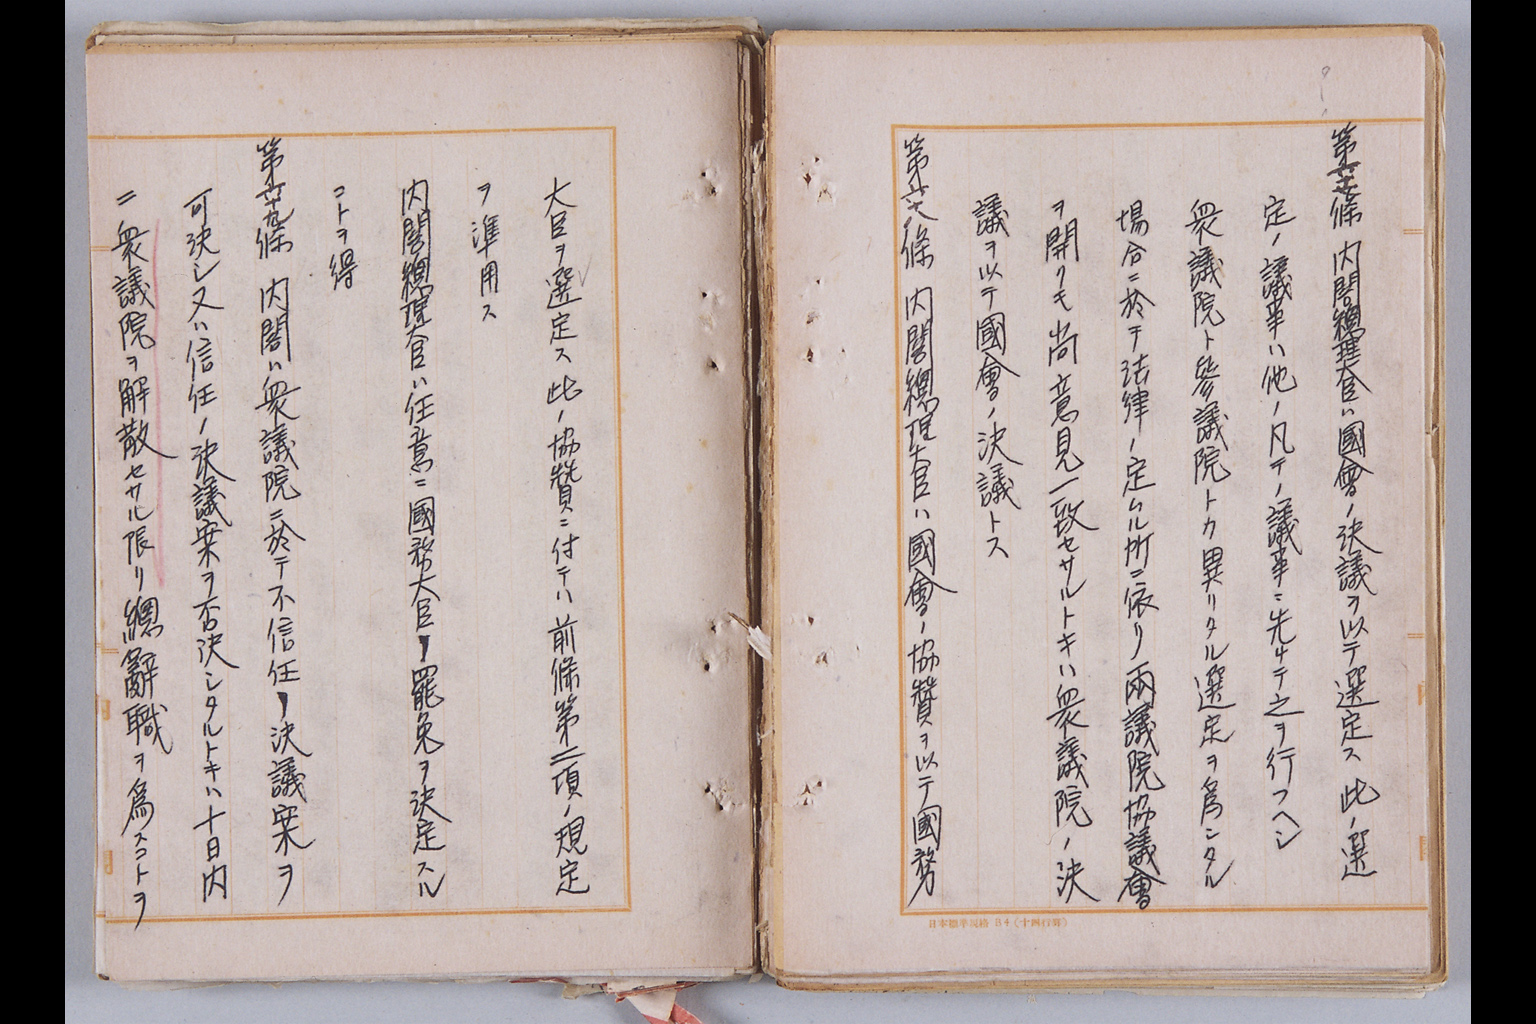 第六十七條 内閣總理大臣ハ國會ノ決議ヲ以テ選定ス此ノ選
定ノ議事ハ他ノ凡テノ議事ニ先チテ之ヲ行フヘシ
衆議院ト參議院トカ異リタル選定ヲ爲シタル
場合ニ於テ法律ノ定ムル所ニ依リ兩議院協議會
ヲ開クモ尚意見一致セサルトキハ衆議院ノ決
議ヲ以テ國會ノ決議トス
第六十八條 内閣總理大臣ハ國會ノ協贊ヲ以テ國務
日本標準規格 B4(十四行罫)
大臣ヲ選定ス此ノ協贊ニ付テハ前條第二項ノ規定
ヲ準用ス
内閣總理大臣ハ任意ニ國務大臣ノ罷免ヲ決定スル
コトヲ得
第六十九條 内閣ハ衆議院ニ於テ不信任ノ決議案ヲ
可決シ又ハ信任ノ決議案ヲ否決シタルトキハ十日内
ニ衆議院ヲ解散セサル限リ總辭職ヲ爲スコトヲ